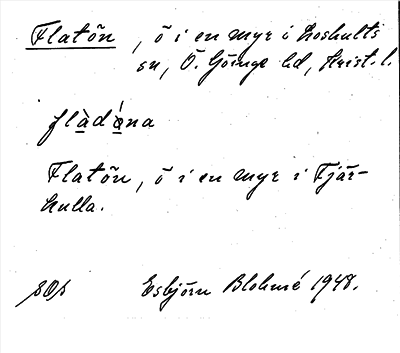 Flatön, ö i en myr i Loshults
sn, Ö. Göinge hd, Krist. l.
flàdǿna
Flatön, ö i en myr i Fjär-
hulla.
Esbjörn Blohmé 1948.